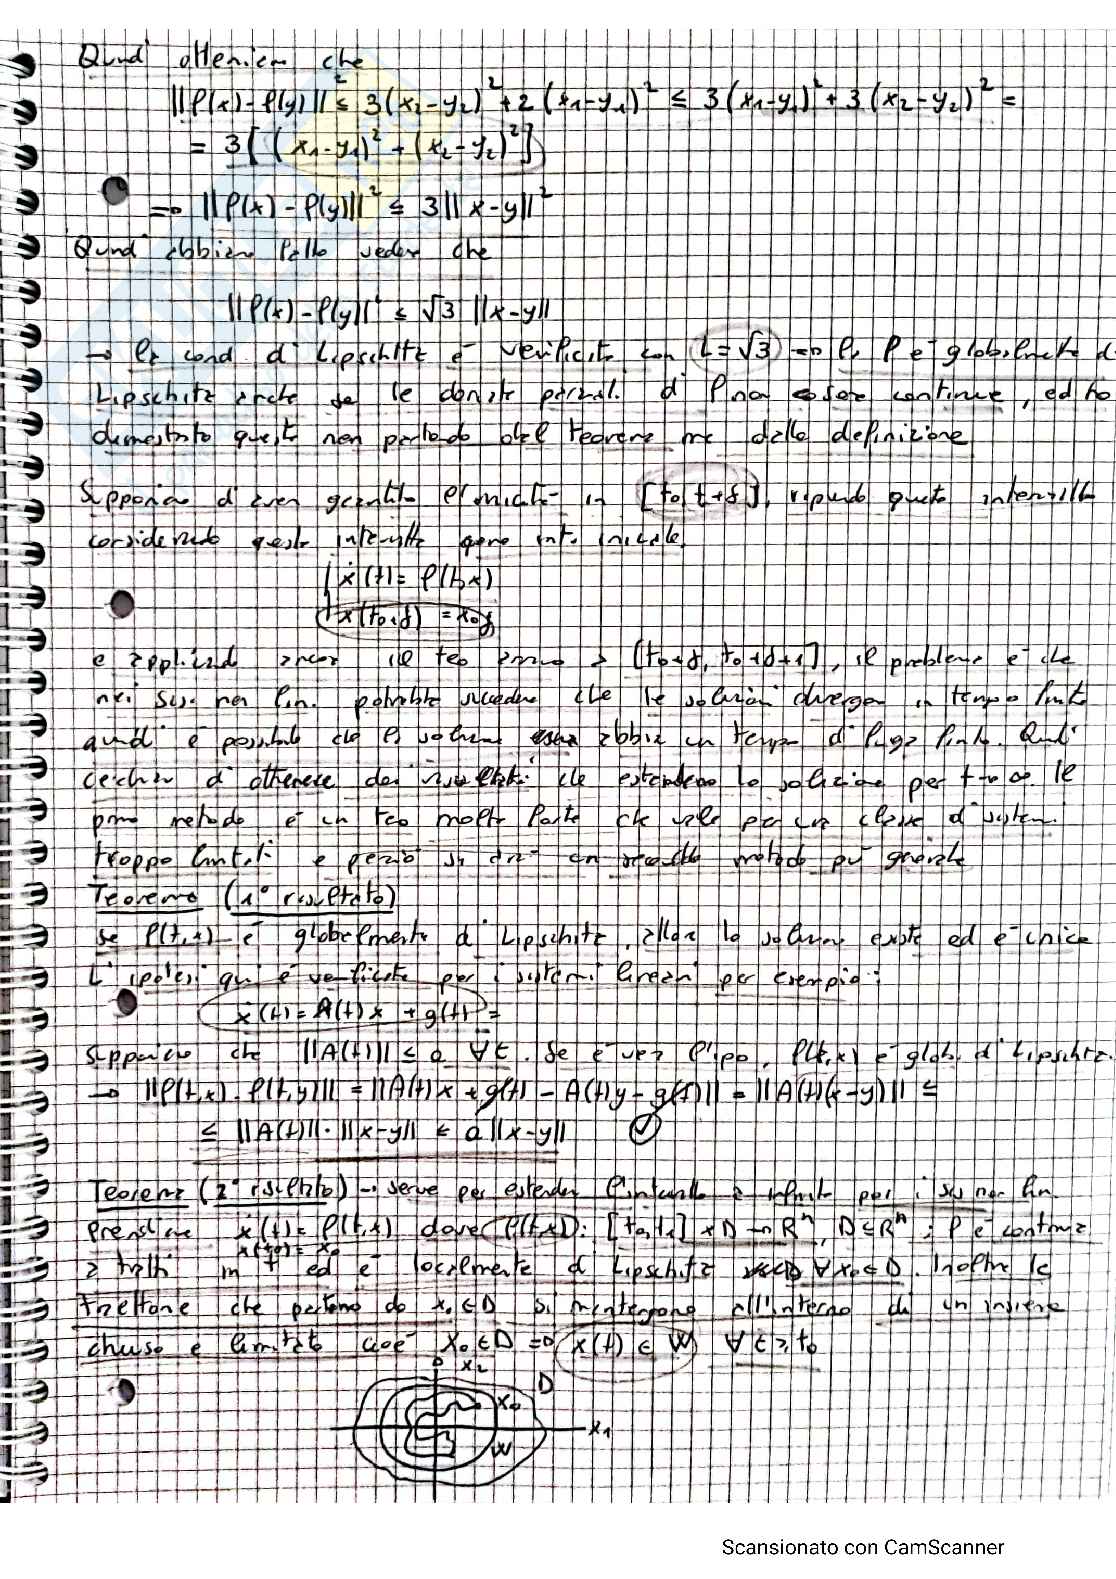 Quindi otteniamo che
||f(x) - f(y)||² ≤ 3(x₂-y₂)² + 2(x₁-y₁)² ≤ 3(x₁-y₁)² + 3(x₂-y₂)² =
= 3[(x₁-y₁)² + (x₂-y₂)²]
⇒ ||f(x) - f(y)||² ≤ 3||x-y||²
Quindi abbiamo fatto vedere che
||f(x) - f(y)|| ≤ √3 ||x-y||
→ la cond di Lipschitz è verificata con L=√3 ⇒ la f è globalmente di
Lipschitz anche se le derivate parziali di f non essere continue, ed ho
dimostrato questo non partendo dal teorema ma dalla definizione
Supponiamo d'aver garantito in [t₀, t+δ], questo intervallo
considerando questo intervallo come int. iniziale
ẋ(t) = f(t,x)
x(t₀+δ) = x₀δ
e applicando ancora il teo a [t₀+δ, t₀+δ+δ₁], il problema è che
nei sis. non lin. potrebbe succedere che le soluzioni divergano in tempo finito
quindi è possibile che la soluzione abbia un tempo di fuga finito. Quindi
cerchiamo di ottenere dei risultati che estendano la soluzione per t→∞. Il
primo metodo è un teo molto forte che vale per una classe di sistemi
troppo limitati e perciò si dà un secondo metodo più generale
Teorema (1° risultato)
se f(t,x) è globalmente di Lipschitz, allora la soluzione esiste ed è unica
L'ipotesi qui è verificata per i sistemi lineari per esempio:
ẋ(t) = A(t)x + g(t) =
Supponiamo che ||A(t)|| ≤ a ∀t. Se è vera l'ipo. f(t,x) è glob. di Lipschitz.
→ ||f(t,x) - f(t,y)|| = ||A(t)x + g(t) - A(t)y - g(t)|| = ||A(t)(x-y)|| ≤
≤ ||A(t)||·||x-y|| ≤ a||x-y||
Teorema (2° risultato) → serve per estendere l'intervallo a infinito per i sis non lin.
ẋ(t) = f(t,x) dove f(t,x): [t₀,t₁] x D → Rⁿ, D∈Rⁿ; f è continua
x(t₀) = x₀
a tratti in t ed è localmente di Lipschitz ∀x₀∈D. Inoltre le
traiettorie che partono da x₀∈D si mantengono all'interno di un insieme
chiuso e limitato cioè x₀∈D ⇒ x(t) ∈ W ∀t≥t₀
x₂
D
x₀
x₁
W
Scansionato con CamScanner